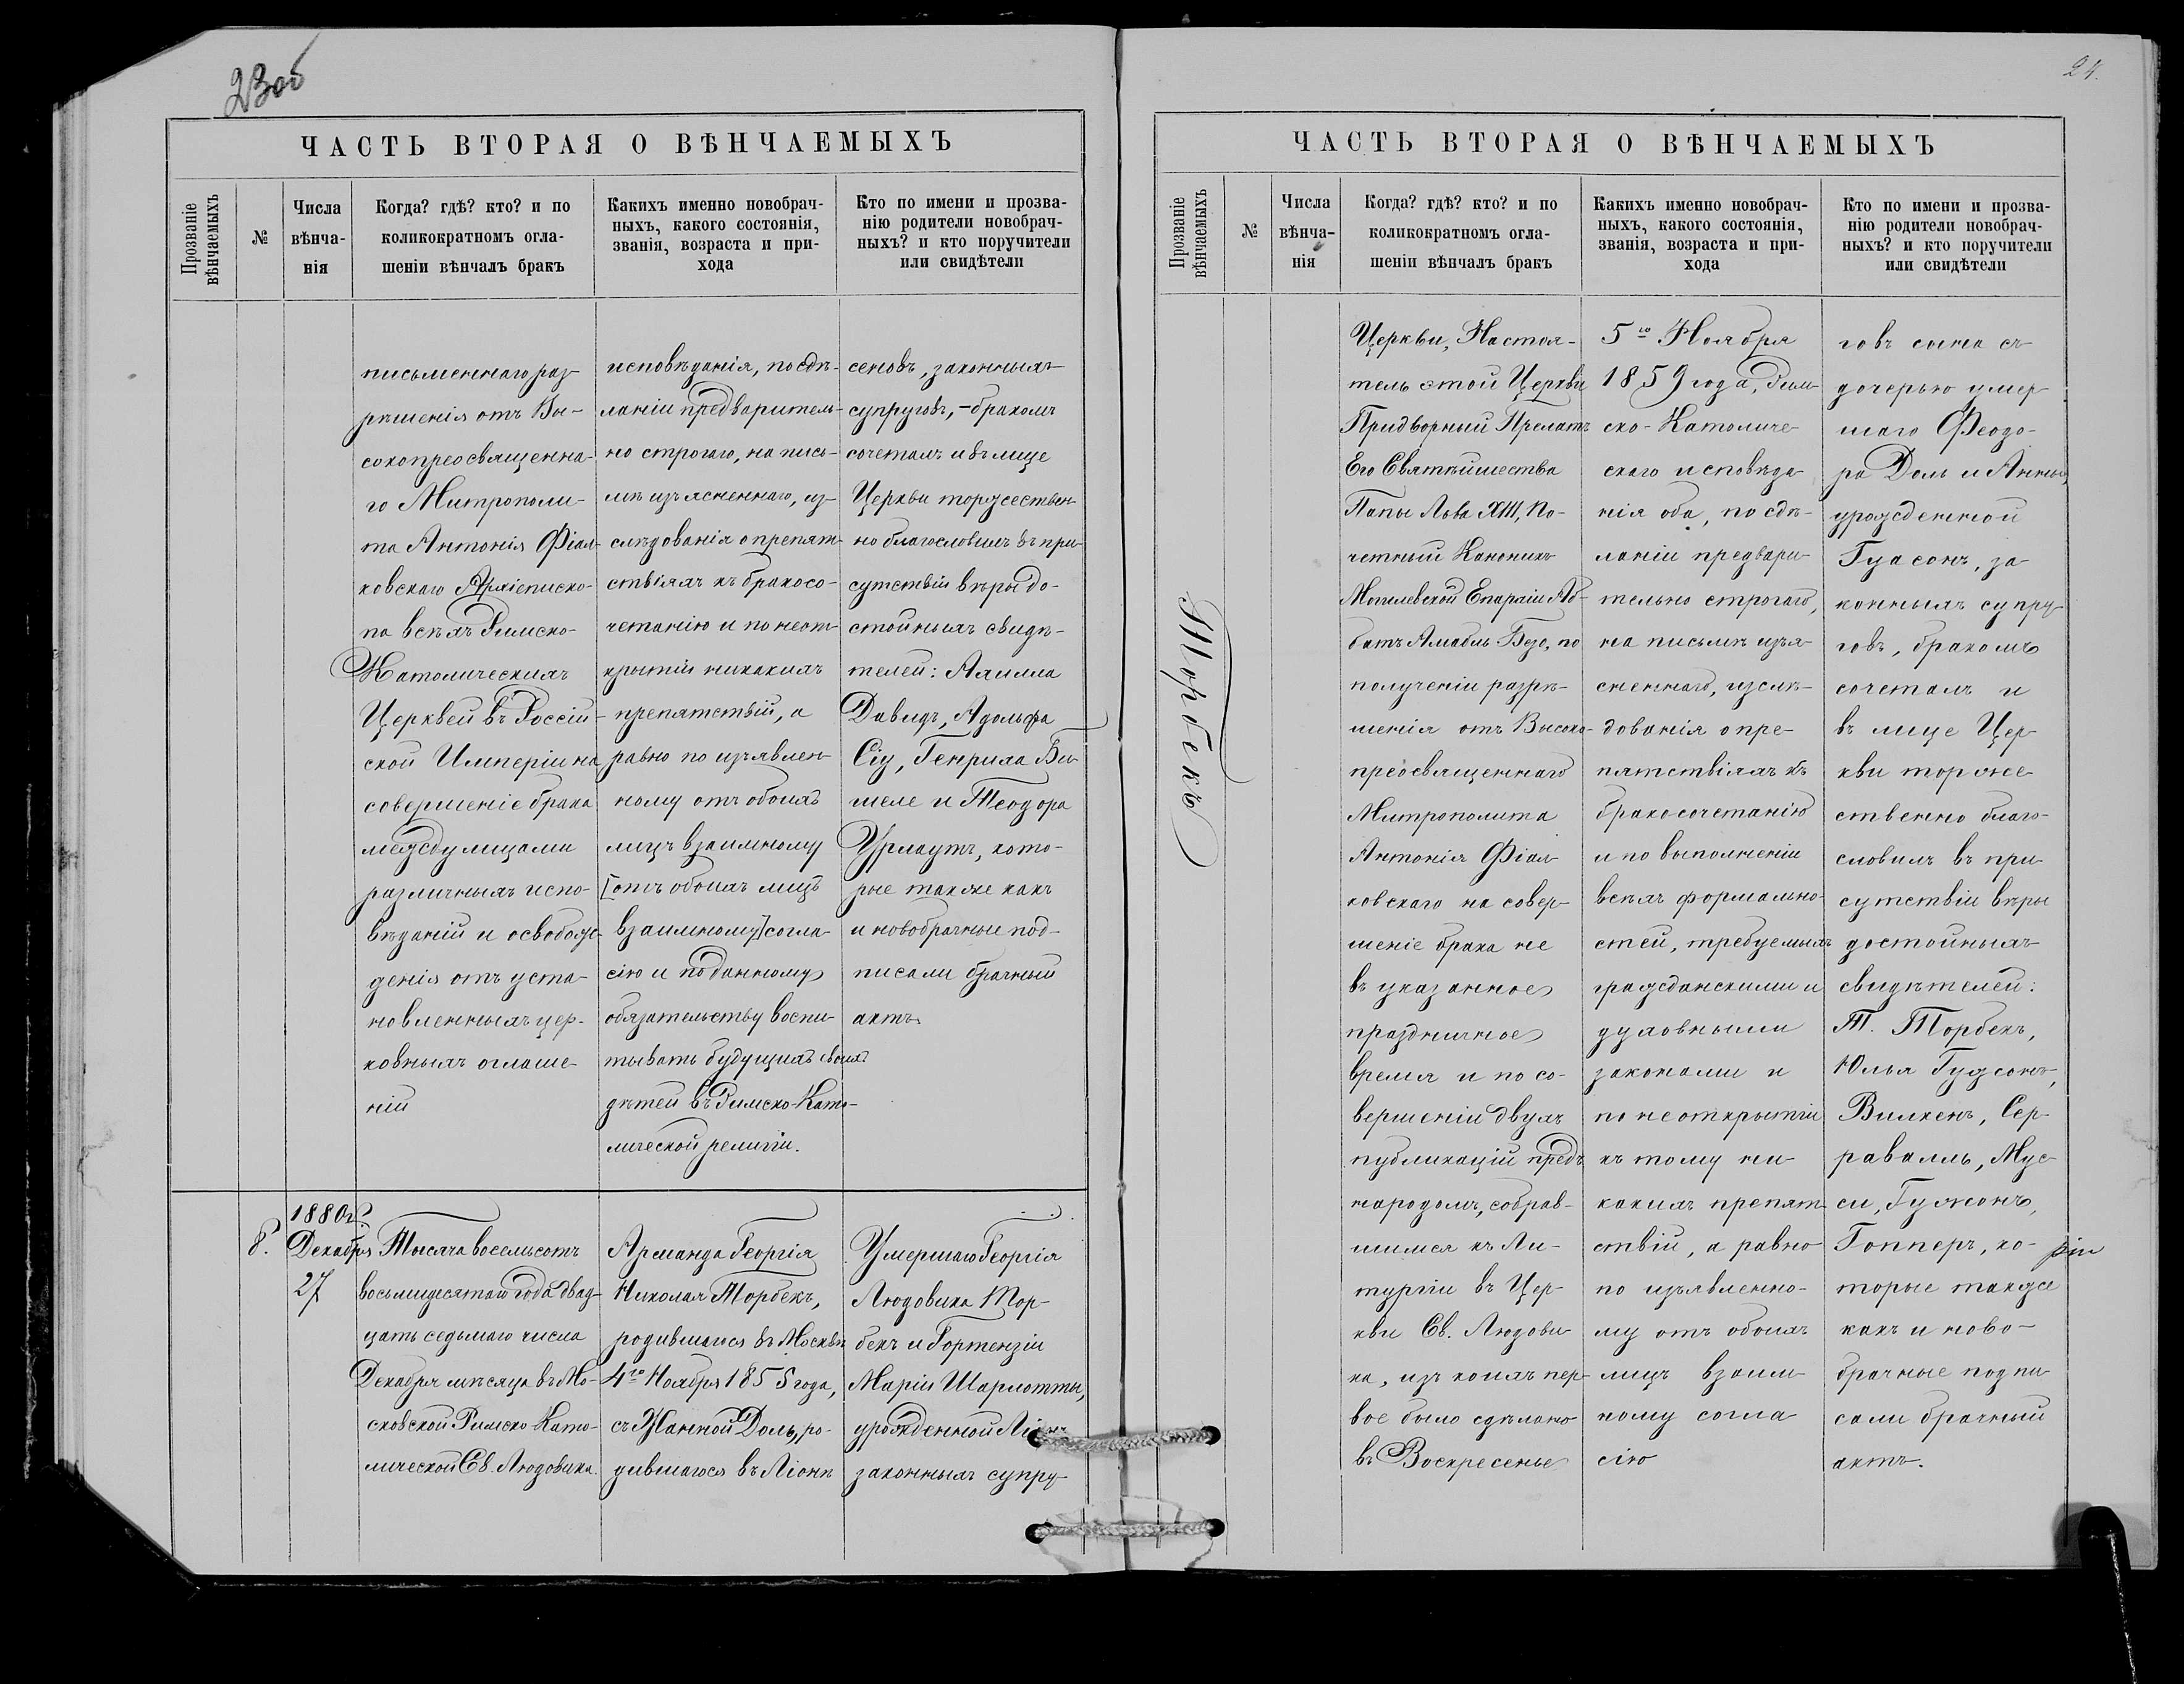 23об
ЧАСТЬ ВТОРАЯ О ВѢНЧАЕМЫХЪ
Прозваніе
вѣнчаемыхъ
№
Числа
вѣнча-
нія
Когда? гдѣ? кто? и по
коликократномъ огла-
шеніи вѣнчалъ бракъ
Какихъ именно новобрач-
ныхъ, какого состоянія,
званія, возраста и при-
хода
Кто по имени и прозва-
нію родители новобрач-
ныхъ? и кто поручители
или свидѣтели
письменнаго раз-
рѣшенія отъ Вы-
сокопреосвященна-
го Митрополи-
та Антонія Фіал-
ковскаго Архіеписко-
па всѣхъ Римско-
Католическихъ
Церквей въ Россій-
ской Имперіи на
совершеніе брака
между лицами
различныхъ испо-
вѣданій и освобож-
денія отъ уста-
новленныхъ цер-
ковныхъ оглаше-
ній
исповѣданія, по сдѣ-
ланіи предваритель-
но строгаго, на пись-
мѣ изъясненнаго, из-
слѣдованія о препят-
ствіяхъ къ бракосо-
четанію и по неот-
крытіи никакихъ
препятствій, а
равно по изъявлен-
ному отъ обоихъ
лицъ взаимному
[отъ обоихъ лицъ
взаимному] согла-
сію и по данному
обязательству воспи-
тывать будущихъ своихъ
дѣтей въ Римско-Като-
лической религіи.
сеновъ, законныхъ
супруговъ, - бракомъ
сочеталъ и въ лице
Церкви торжествен-
но благословилъ въ при-
сутствіи вѣры до-
стойныхъ свидѣ-
телей: Ахилла
Давидъ, Адольфа
Сіу, Генриха Би-
шеле и Теодора
Урлаутъ, кото-
рые также какъ
и новобрачные под-
писали брачный
актъ.
8.
1880 г.
Декабря
27
Тысяча восемьсотъ
восьмидесятаго года двад-
цать седьмаго числа
Декабря мѣсяца въ Мо-
сковской Римско-Като-
лической Св. Людовика
Арманда Георгія
Николая Торбекъ,
родившагося въ Москвѣ
4го Ноября 1855 года,
съ Жанной Доль, ро-
дившагося въ Ліонѣ
Умершаго Георгія
Людовика Тор-
бекъ и Гортензіи
Маріи Шарлотты,
урожденной
законныхъ супру-
24.
ЧАСТЬ ВТОРАЯ О ВѢНЧАЕМЫХЪ
Прозваніе
вѣнчаемыхъ
№
Числа
вѣнча-
нія
Когда? гдѣ? кто? и по
коликократномъ огла-
шеніи вѣнчалъ бракъ
Какихъ именно новобрач-
ныхъ, какого состоянія,
званія, возраста и при-
хода
Кто по имени и прозва-
нію родители новобрач-
ныхъ? и кто поручители
или свидѣтели
Торбекъ
Церкви, Настоя-
тель этой Церкви
Придворный Прелатъ
Его Святѣйшества
Папы Льва XIII, По-
четный Каноникъ
Могилевской Епархіи Аб-
батъ Амабль Безо, по
полученіи разрѣ-
шенія отъ Высоко-
преосвященнаго
Митрополита
Антонія Фіал-
ковскаго на совер-
шеніе брака не
въ указанное
праздничное
время и по со-
вершеніи двухъ
публикацій предъ
народомъ, собрав-
шимся къ Ли-
тургіи въ Цер-
кви Св. Людови-
ка, изъ коихъ пер-
вое было сдѣлано
въ Воскресенье
5го Ноября
1859 года, Рим-
ско-Католиче-
скаго исповѣда-
нія оба, по сдѣ-
ланіи предвари-
тельно строгаго,
на письмѣ изъя-
сненнаго, изслѣ-
дованія о пре-
пятствіяхъ къ
бракосочетанію
и по выполненіи
всѣхъ формально-
стей, требуемыхъ
гражданскими и
духовными
законами и
по неоткрытіи
къ тому ни-
какихъ препят-
ствій, а равно
по изъявленно-
му отъ обоихъ
лицъ взаим-
ному согла-
сію
говъ сына съ
дочерью умер-
шаго Феодо-
ра Доль и Анны,
урожденной
Гуасонъ, за-
конныхъ супру-
говъ, бракомъ
сочеталъ и
въ лице Цер-
кви торже-
ственно благо-
словилъ въ при-
сутствіи вѣры
достойныхъ
свидѣтелей:
Т. Торбекъ,
Юлья Гужонъ,
Вилкенъ, Сер-
раваль, Мус-
си, Гужонъ,
Гопперъ, ко-
торые также
какъ и ново-
брачные подпи-
сали брачный
актъ.